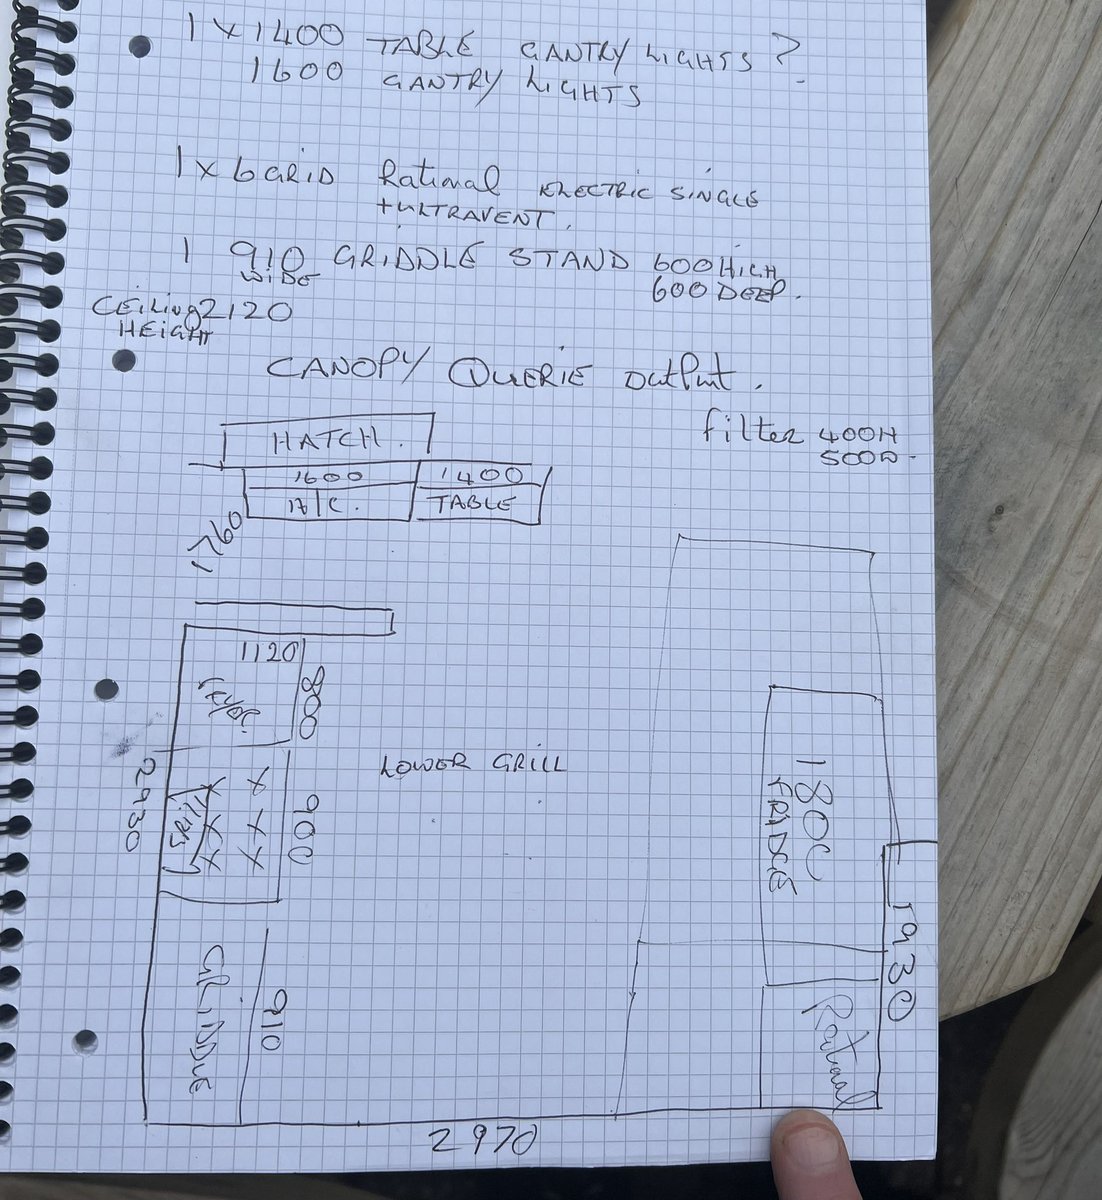 1 x 1400 TABLE GANTRY LIGHTS ?
1600 GANTRY LIGHTS
1 x 6 GRID Rational ELECTRIC SINGLE
+ ULTRAVENT.
1 910 GRIDDLE STAND 600 HIGH
WIDE 600 DEEP.
CEiLing 2120
HEIGHT
CANOPY QUERIE OutPut.
filter 400H
500D
HATCH.
1600 1400
TABLE
1760
1120
800
2930
LOWER GRILL
900
1800
FRIDGE
GRIDDLE
910
1930
Rational
2970